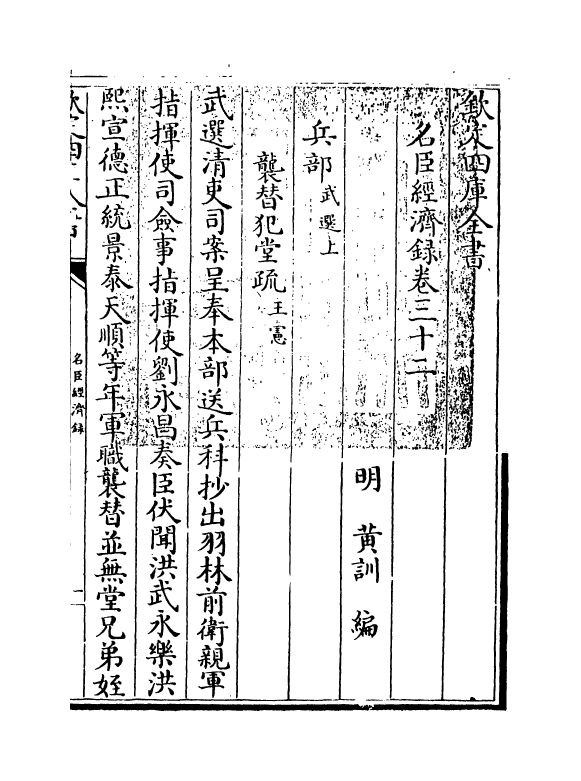 欽定四庫全書
名臣經濟録卷三十二
明 黄訓 編
兵部武選上
襲替犯堂疏王憲
武選清吏司案呈奉本部送兵科抄出羽林前衛親軍
指揮使司僉事指揮使劉永昌奏臣伏聞洪武永樂洪
熙宣德正統景泰天順等年軍職襲替並無堂兄弟姪
名臣經濟録